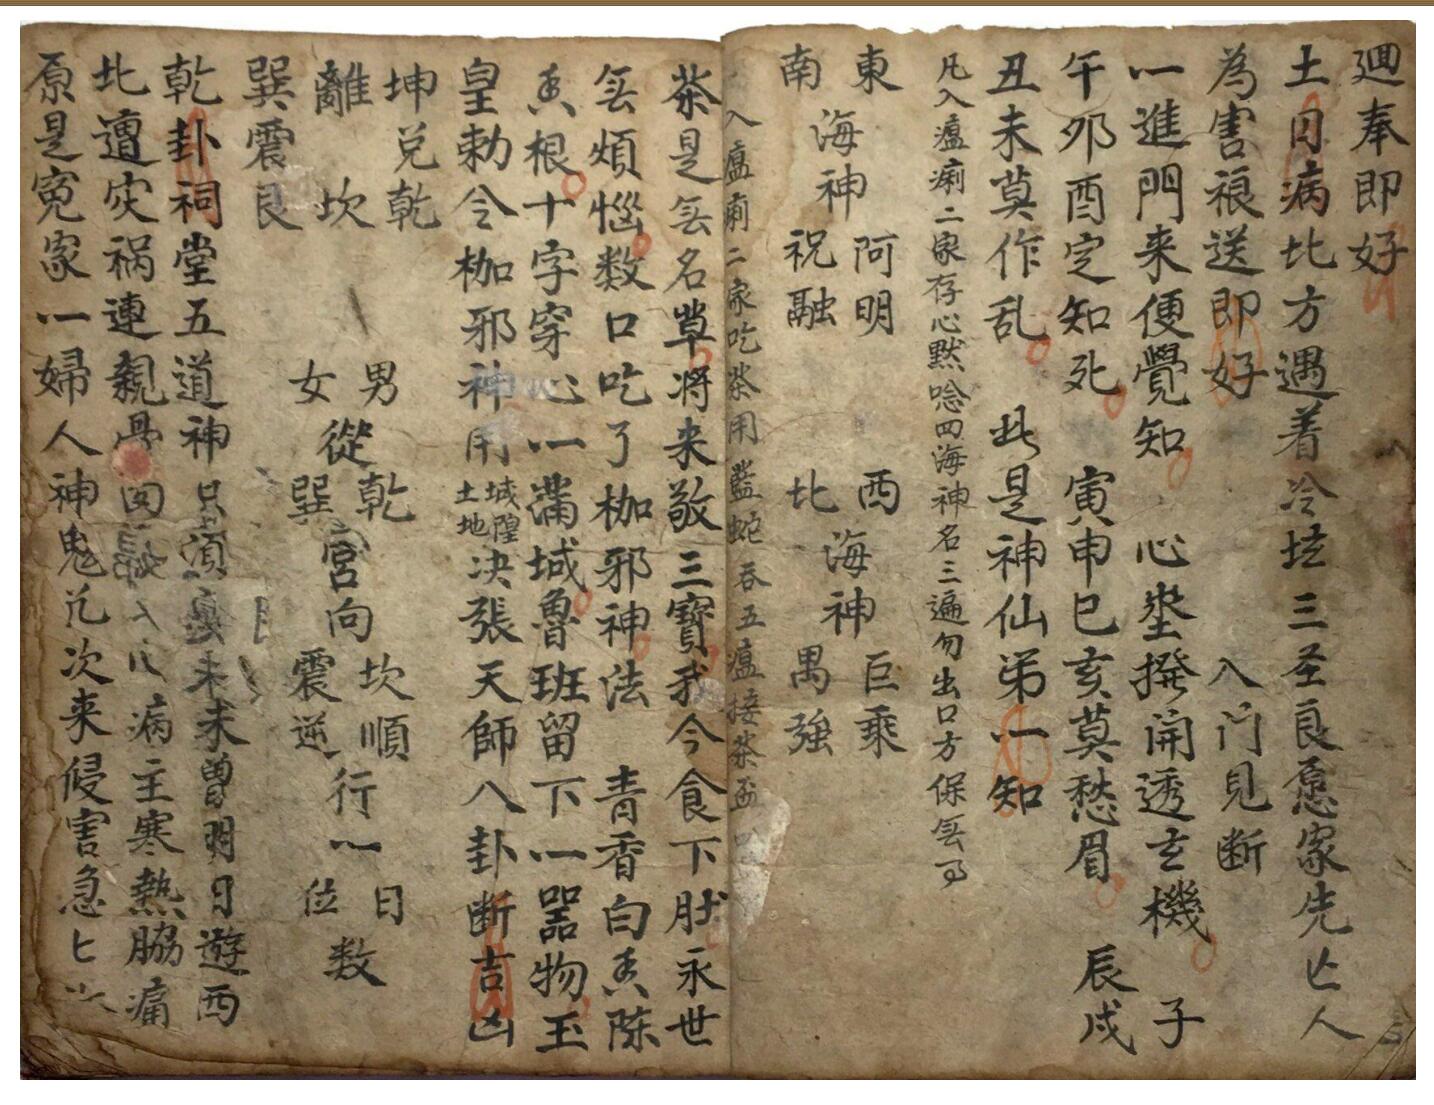 廻奉即好
土日病北方遇着冷坛三圣良愿家先亡人
為害禳送即好 入门見断
一進門来便覺知 心坐撥開透玄機 子
午夘酉定知死 寅申巳亥莫愁眉 辰戌
丑未莫作乱 此是神仙弟一知
凡入瘟痢二家存心默唸四海神名三遍勿出口方保無事
東 海神 阿明 西 海神 巨乘
南 祝融 北 禺強
入瘟痢二家吃茶用 蛇吞五瘟接茶
茶是無名草将来敬三寶我今食下肚永世
無煩惱数口吃了枷邪神法 青香白香陈
香根十字穿心一满城魯班留下一器物玉
皇勅令枷邪神用城隍土地决張天師八卦断吉凶
坤兑乾 男 乾 坎順 日
離坎 從 宮向 行一 数
巽震艮 女 巽 震逆 位
乾卦祠堂五道神只須 未未曾明日遊西
北遭灾祸連親骨 病主寒熱脇痛
原是冤家一婦人神鬼 次来侵害急